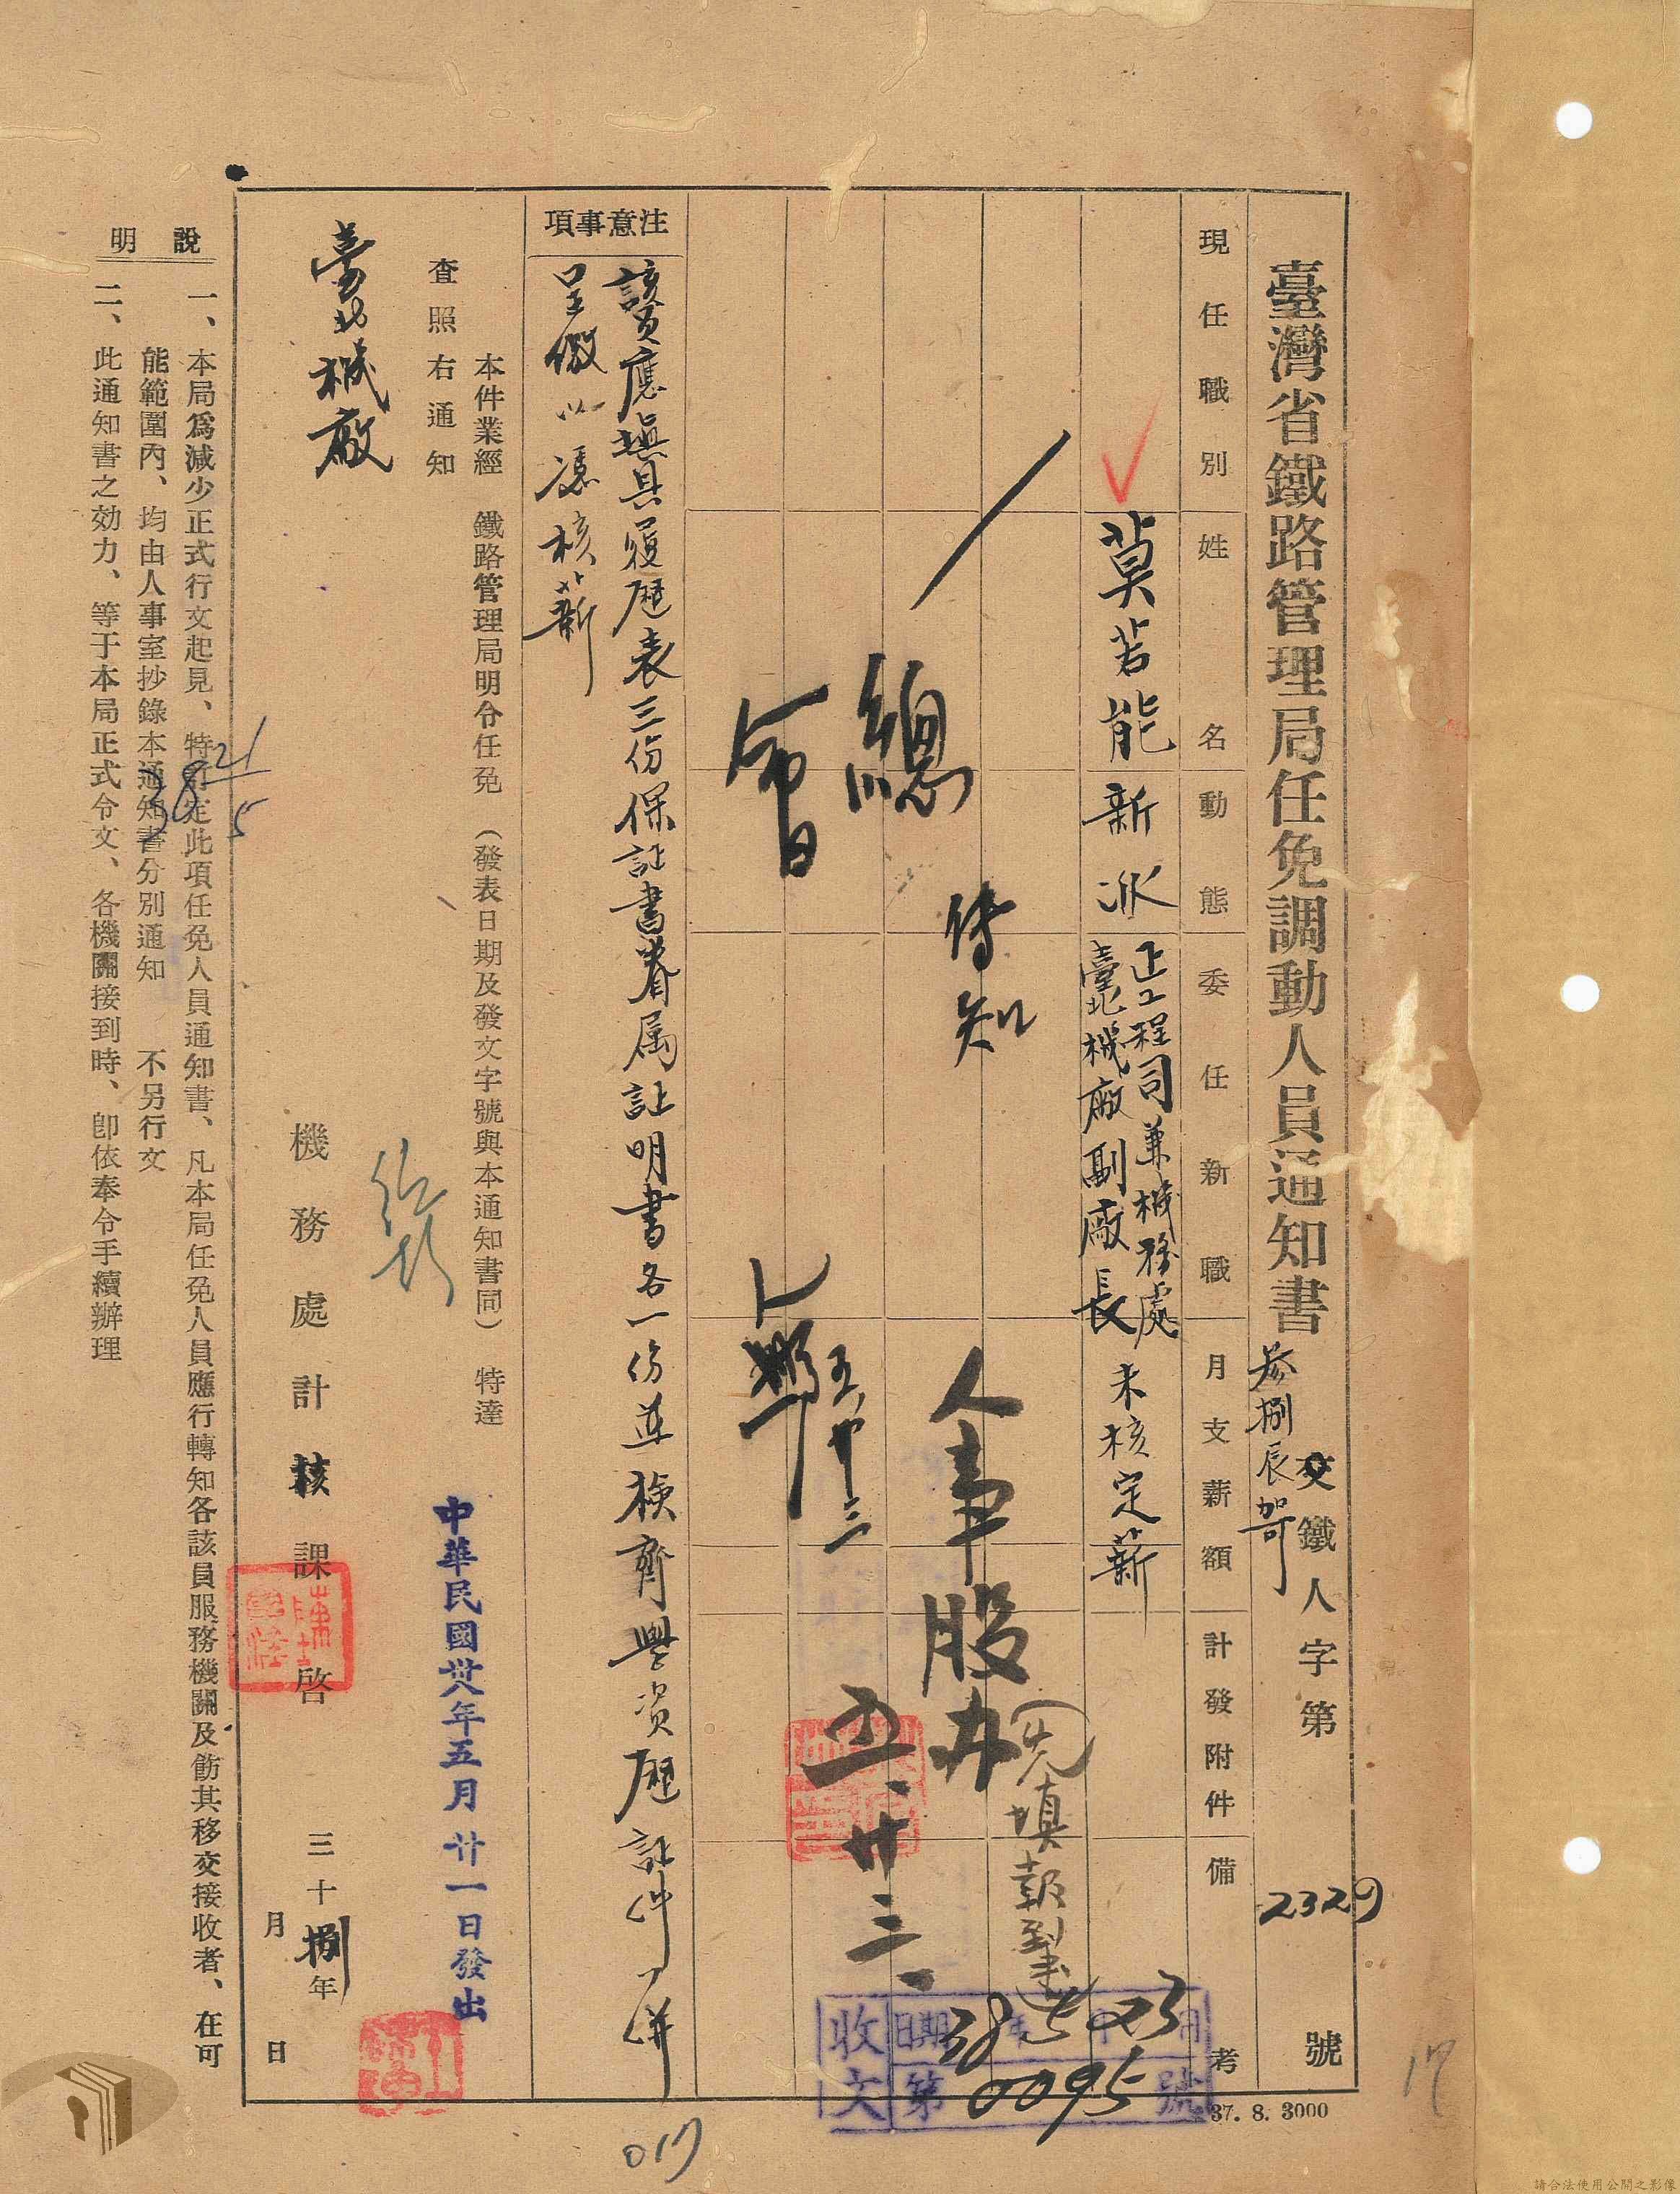 臺灣省鐵路管理局任免調動人員通知書
參捌辰
交鐵人字第 2329 號
現任職別
姓名
動態
委任新職
月支薪額
計發附件
備考
莫若能
新派
正工程司兼機務處
臺北機廠副廠長
未核定薪
先填報到
傳知
人事股办
五、廿三、
總
會
五、廿三
收文
日期 38 5 23
第 0095 號
注意事項
該員應填具履歷表三份保証書眷属証明書各一份並檢齊學資歷証件一併
呈繳以憑核薪
本件業經 鐵路管理局明令任免 (發表日期及發文字號與本通知書同) 特達
查照右通知
中華民國卅八年五月廿一日發出
臺北機廠
機務處計核課啓
三十捌年
月 日
說明
一、本局爲減少正式行文起見、特訂定此項任免人員通知書、凡本局任免人員應行轉知各該員服務機關及飭其移交接收者、在可
能範圍內、均由人事室抄錄本通知書分別通知 不另行文
二、此通知書之効力、等于本局正式令文、各機關接到時、卽依奉令手續辦理
38 21/5
37. 8. 3000
017
17
請合法使用公開之影像